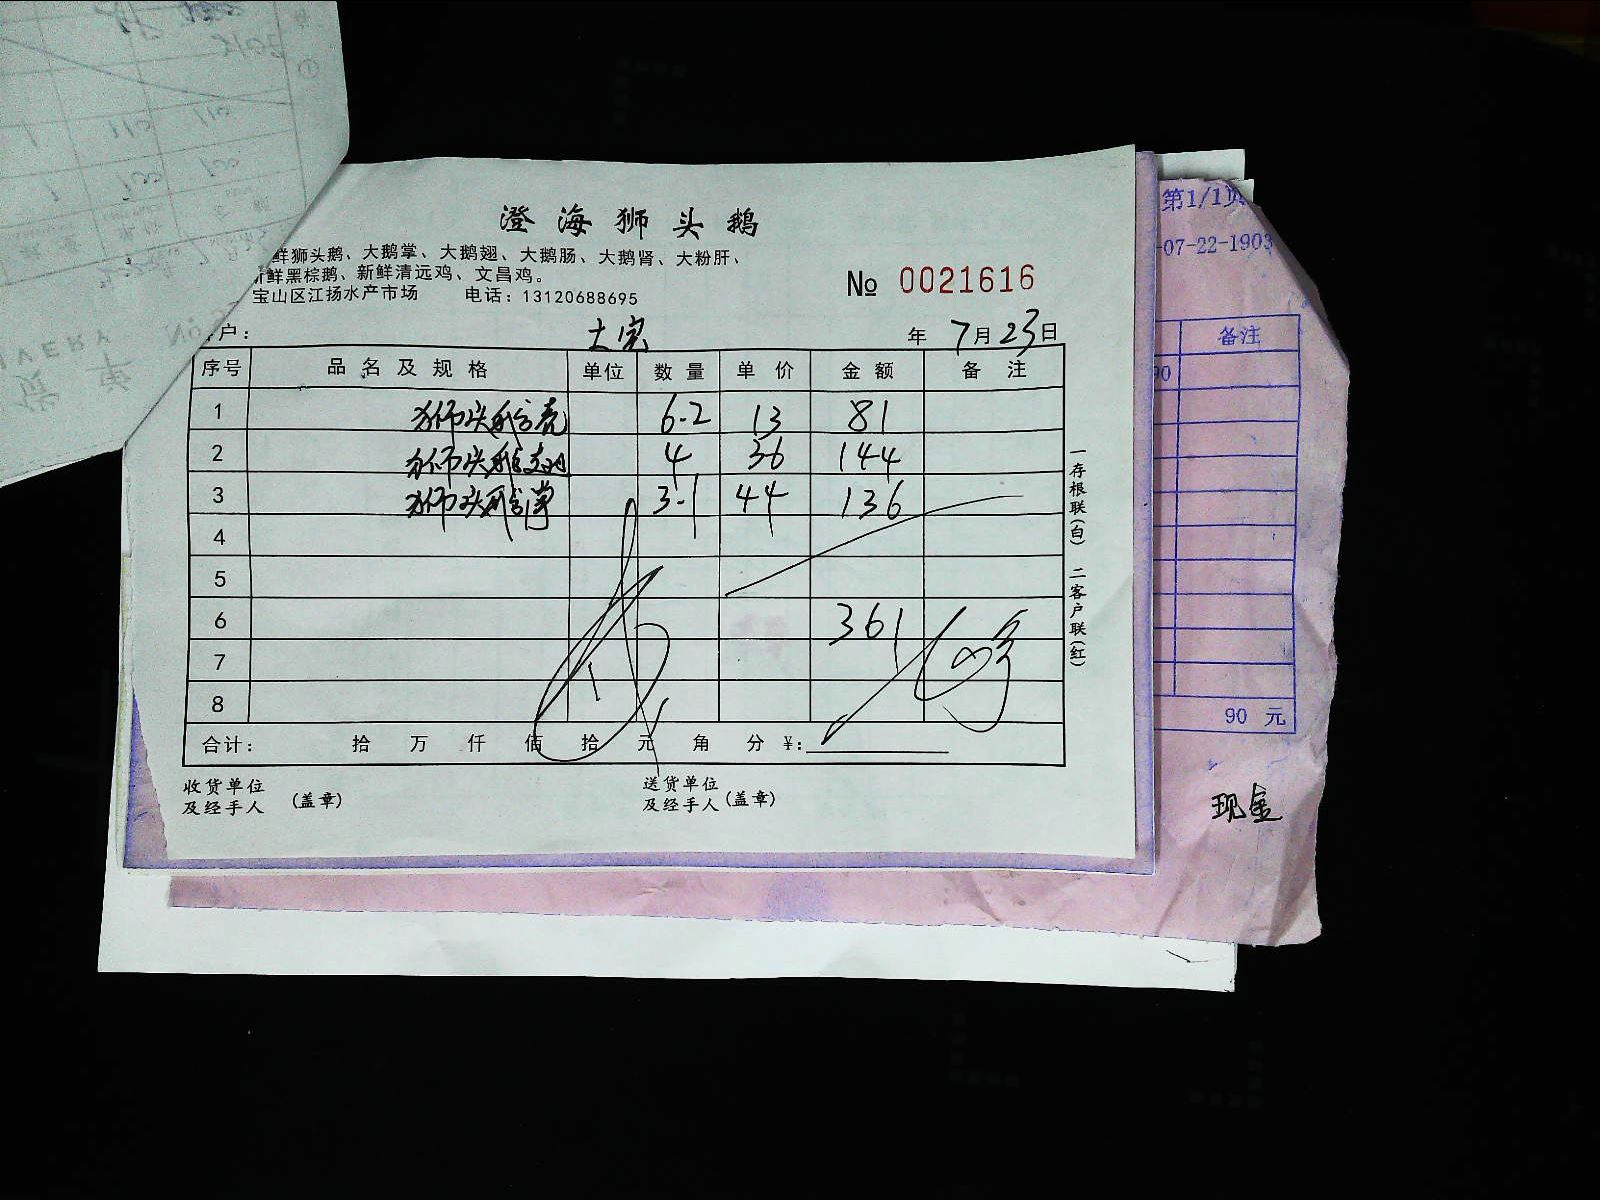 澄海狮头鹅
鲜狮头鹅、大鹅掌、大鹅翅、大鹅肠、大鹅肾、大粉肝、
鲜黑棕鹅、新鲜清远鸡、文昌鸡。
宝山区江扬水产市场 电话：13120688695
№ 0021616
户： 年 7月23日
序号 品名及规格 单位 数量 单价 金额 备注
1 狮头鹅壳 6.2 13 81
2 狮头鹅翅 4 36 144
3 狮头鹅掌 3.1 44 136
4
5
6 361
7
8
合计： 拾 万 仟 佰 拾 元 角 分 ¥：
收货单位
及经手人 （盖章）
送货单位
及经手人 （盖章）
一存根联（白） 二客户联（红）
第1/1页
-07-22-1903
备注
90
90 元
现金